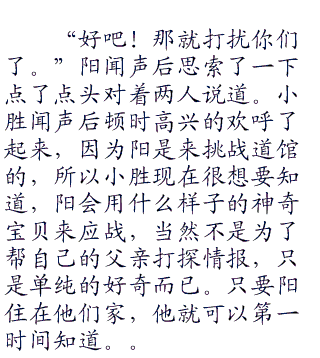 “好吧！那就打扰你们
了。”阳闻声后思索了一下
点了点头对着两人说道。小
胜闻声后顿时高兴的欢呼了
起来，因为阳是来挑战道馆
的，所以小胜现在很想要知
道，阳会用什么样子的神奇
宝贝来应战，当然不是为了
帮自己的父亲打探情报，只
是单纯的好奇而已。只要阳
住在他们家，他就可以第一
时间知道。。